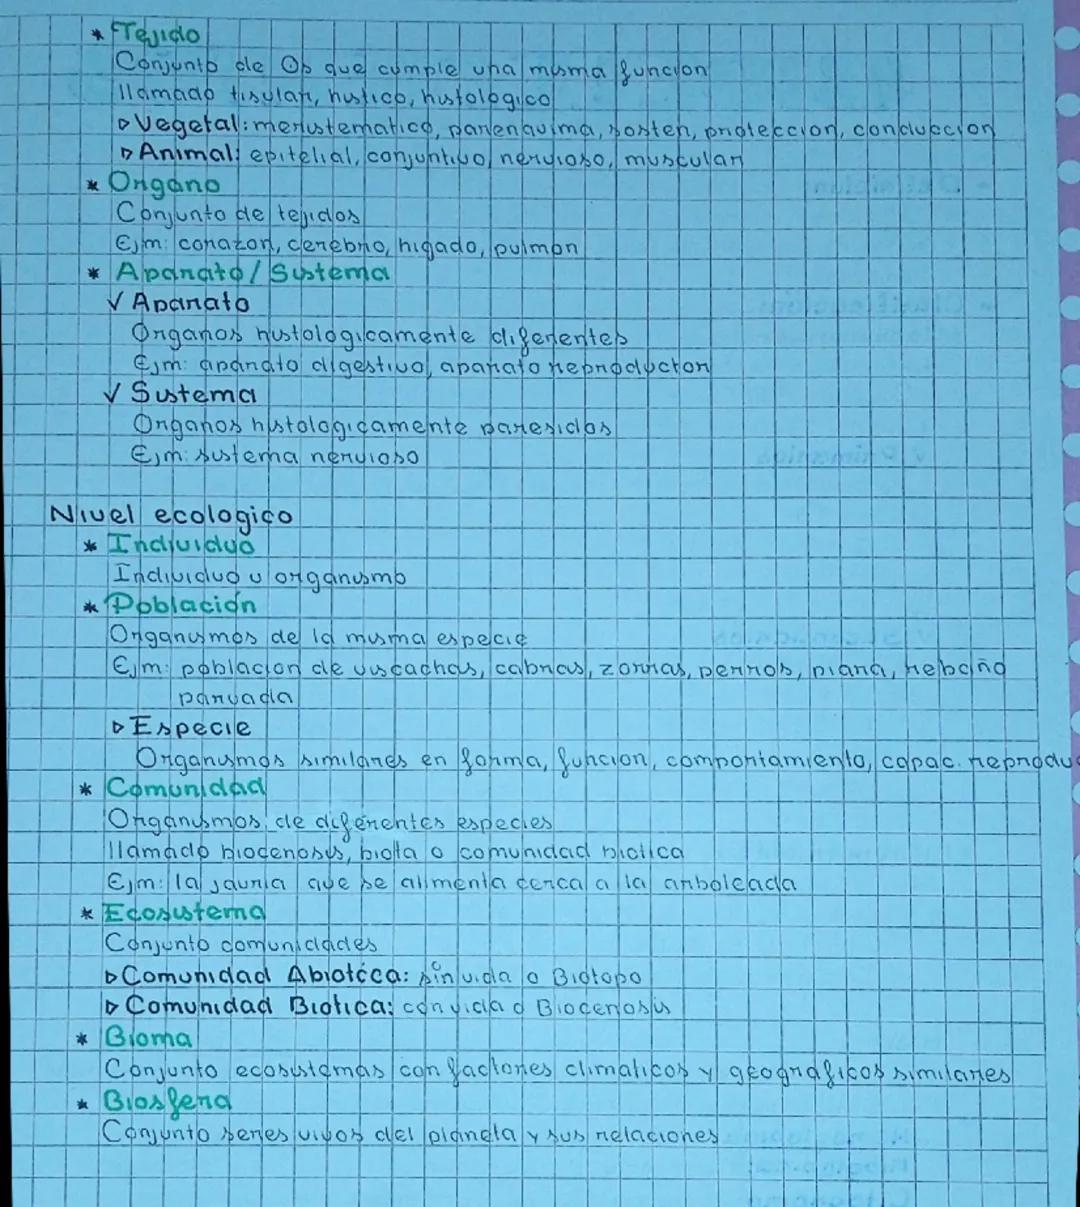 * Tejido
Conjunto de Cb que cumple una misma funcion
llamado tisular, histico, histologico
▷ Vegetal: meristematico, parenquima, sosten, proteccion, conduccion
▷ Animal: epitelial, conjuntivo, nervioso, muscular
* Organo
Conjunto de tejidos
Ejm: corazon, cerebro, higado, pulmon
* Aparato/Sistema
✓ Aparato
Organos histologicamente diferentes
Ejm: aparato digestivo, aparato reproductor
✓ Sistema
Organos histologicamente paresidos
Ejm: sistema nervioso
Nivel ecologico
* Individuo
Individuo u organismo
* Población
Organismos de la misma especie
Ejm: poblacion de viscachas, cabras, zorras, perros, piara, rebaño
parvada
▷ Especie
Organismos similares en forma, funcion, comportamiento, capac. reprodu
* Comunidad
Organismos de diferentes especies
llamado biocenosis, biota o comunidad biotica
Ejm: la jauria que se alimenta cerca a la arboleada
* Ecosistema
Conjunto comunidades
▷ Comunidad Abiotica: sin vida o Biotopo
▷ Comunidad Biotica: con vida o Biocenosis
* Bioma
Conjunto ecosistemas con factores climaticos y geográficos similares
* Biosfera
Conjunto seres vivos del planeta y sus relaciones